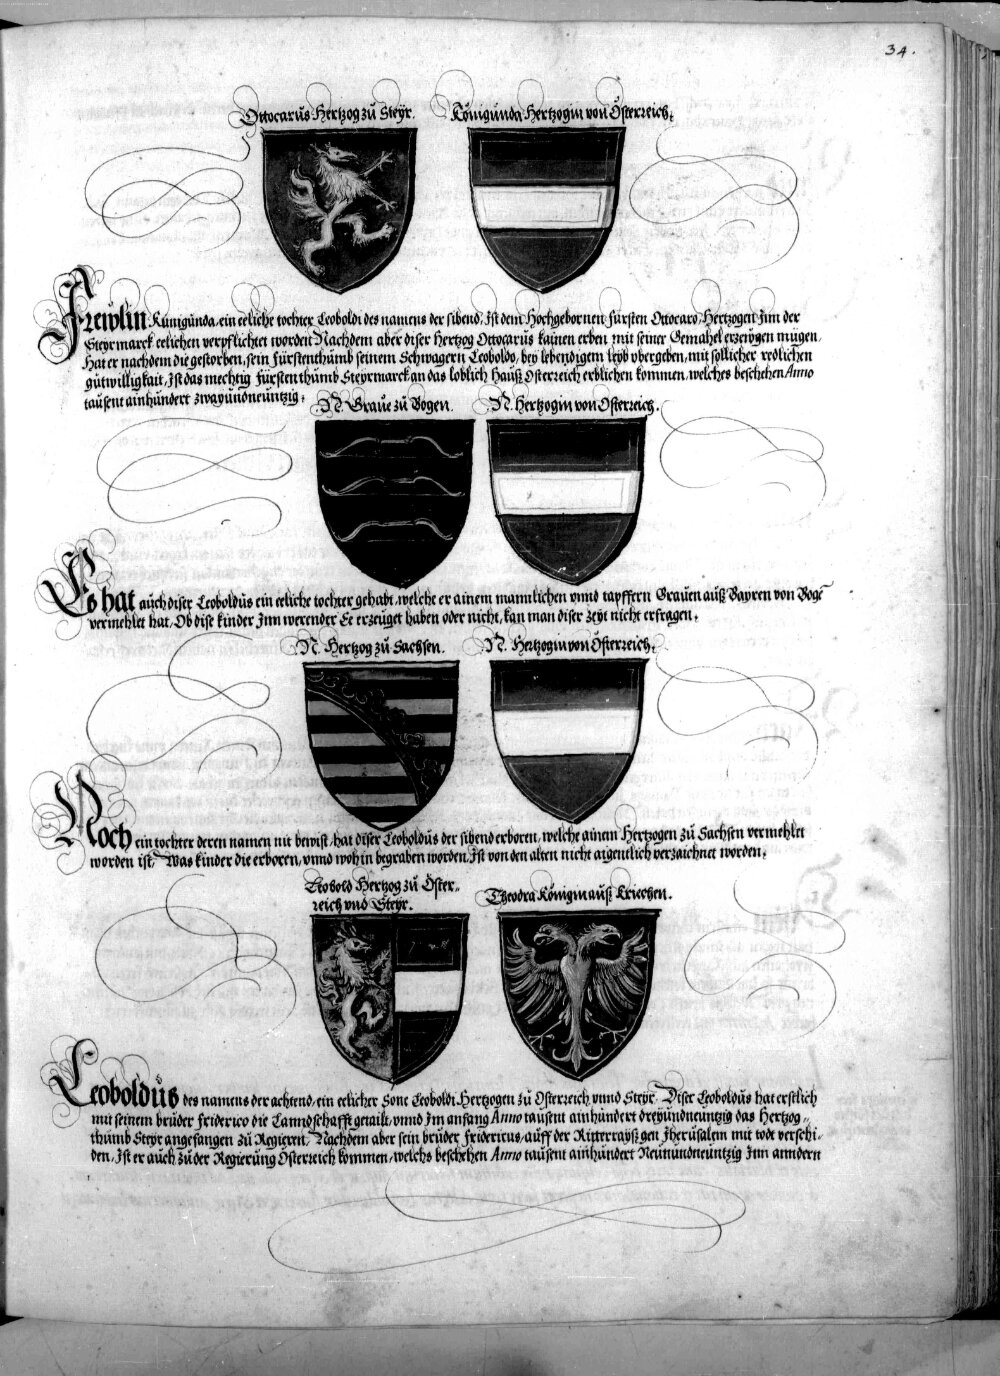 34.
Ottocarus Hertzog zů Steÿr. Königunda Hertzogin von Österreich.
Frewlin Künigunda, ein eeliche tochter Leoboldi des namens der sibend, Ist dem Hochgebornen fürsten Ottocaro, Hertzogen Inn der
Steyrmarck eelichen verpflichtet worden Nachdem aber diser Hertzog Ottocarus kainen erben mit seiner Gemahel erzeügen mügen,
Hat er nachdem die gestorben, sein fürstenthumb seinem Schwagern Leoboldo, beÿ lebendigem leÿb vbergeben, mit sollicher redlichen
gütwilligkait, Ist das mechtig fürstenthumb Steÿrmarck an das loblich Hauß Osterreich erblichen kommen, welches beschehen Anno
tausent ainhundert zwayundneuntzig.
N. Graue zů Bogen. N. Hertzogin von Osterreich.
Es hat auch diser Leoboldus ein eeliche tochter gehabt, welche er ainem mannlichen vnnd tapffern Grauen auß Bayren von Bogē
vermehlet hat, Ob dise kinder Inn werender Ee erzeuget haben oder nicht, kan man diser zeÿt nicht erfragen.
N. Hertzog zů Sachsen. N. Hertzogin von Österreich.
Noch ein tochter deren namen nit bewist, hat diser Leoboldus der sibend erboren, welche ainem Hertzogen zů Sachsen vermehlet
worden ist, Was kinder die erboren, vnnd wohin begraben worden, Ist von den alten nicht aigentlich verzaichnet worden.
Leobold Hertzog zů Öster-
reich vnd Steÿr. Theodra Königin auß Kriechen.
Leoboldus des namens der achtend, ein eelicher Sone Leoboldi Hertzogen zů Osterreich vnnd Steÿr, Diser Leoboldus hat erstlich
mit seinem brůder friderico die Lanndschafft getailt, vnnd Im anfang Anno tausent ainhundert dreÿundneuntzig das Hertzog-
thumb Steÿr angefangen zů Regieren, Nachdem aber sein brůder fridericus, auff der Ritterrayß gen Jherusalem mit tode verschi-
den, Ist er auch zů der Regierung Osterreich kommen, welchs beschehen Anno tausent ainhundert Neunundneuntzig Inn anndern